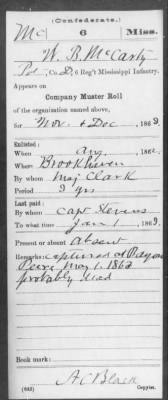 (Confederate.)
Mc 6 Miss.
W. B. McCarty
Co. D, 6 Reg't Mississippi Infantry.
Appears on
Company Muster Roll
of the organization named above,
for Nov. & Dec, 1863
Enlisted:
When Aug, 1862.
Where Brookhaven
By whom Maj Clark
Period 3 yrs
Last paid:
By whom Capt Stevens
To what time Jan 1, 1863.
Present or absent Absent
Remarks: Captured at Bayou
Piere May 1, 1863
probably dead
Book mark:
A C Black
(642) Copyist.